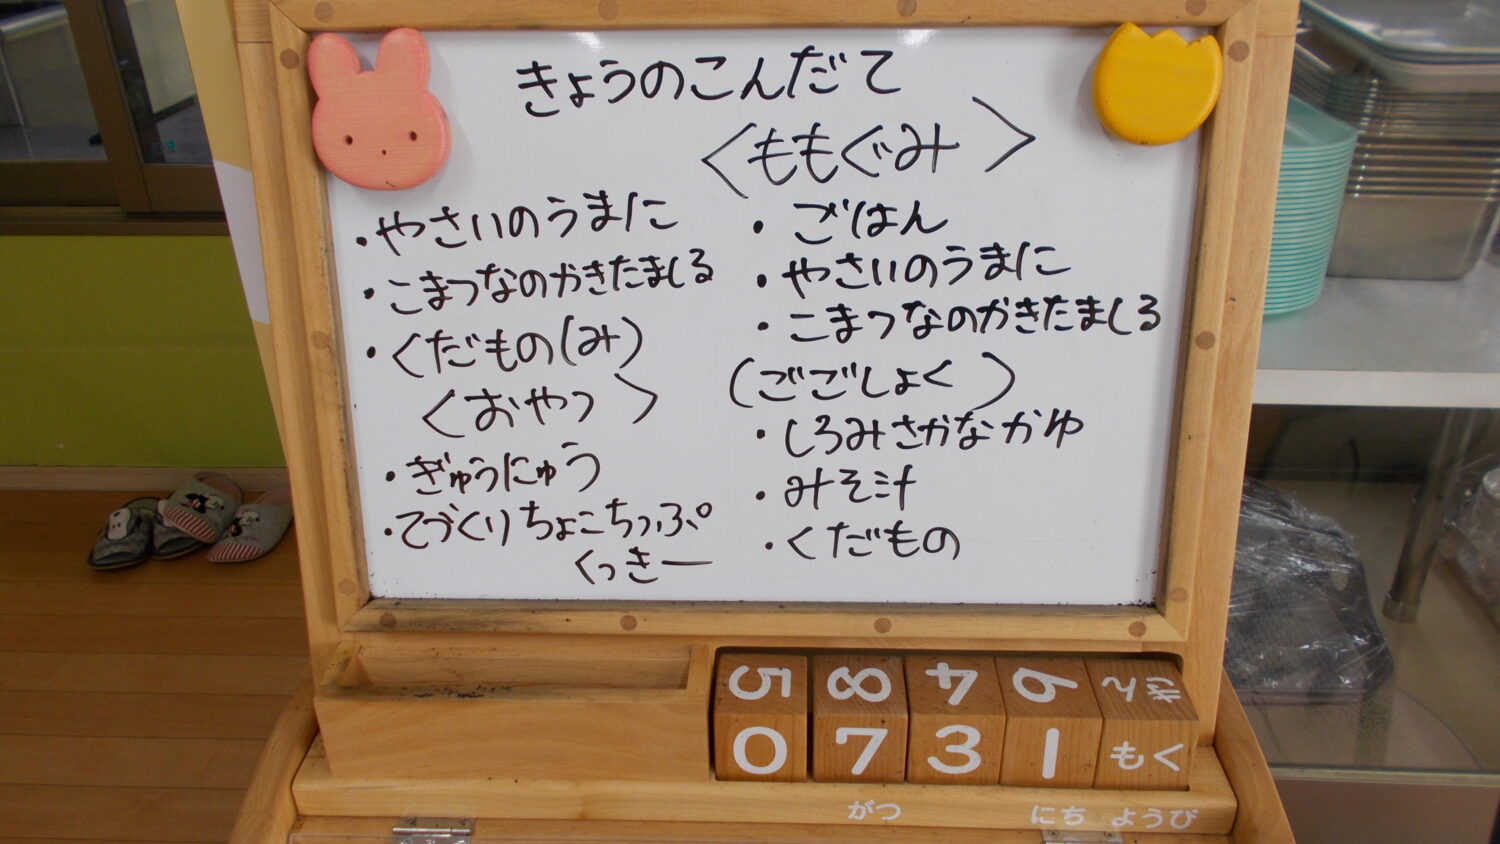 きょうのこんだて
・やさいのうまに
・こまつなのかきたましる
・くだもの(み)
<おやつ>
・ぎゅうにゅう
・てづくりちょこちっぷ
くっきー
<ももぐみ>
・ごはん
・やさいのうまに
・こまつなのかきたましる
(ごごしょく)
・しろみさかなかゆ
・みそ汁
・くだもの
5 8 4 6 きん
0 7 3 1 もく
がつ にち ようび